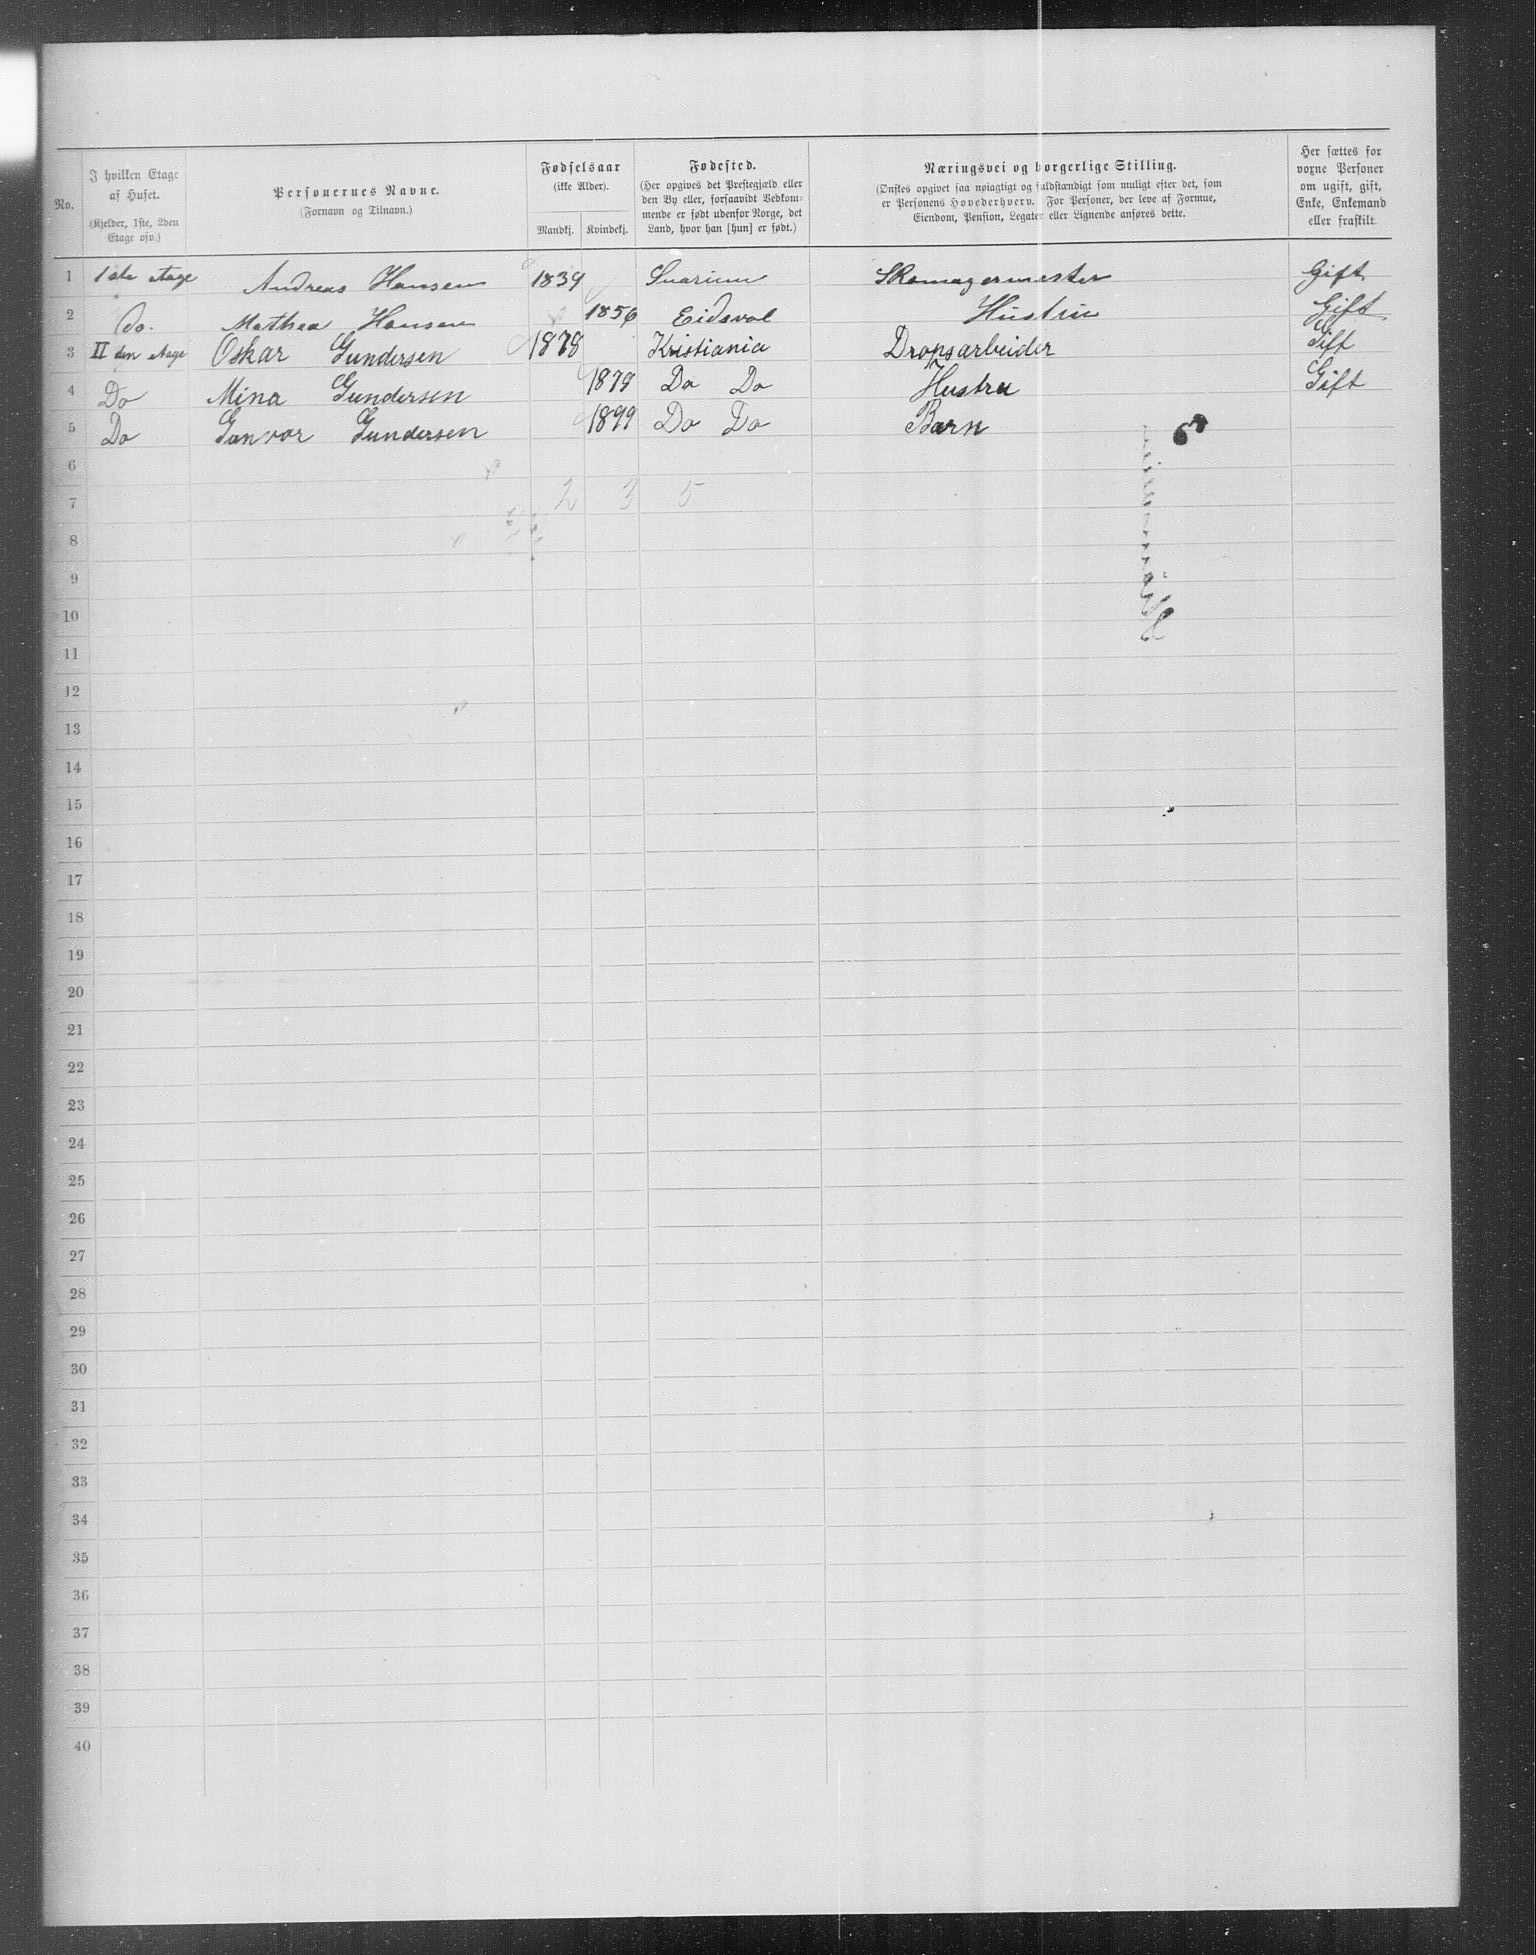 No.
I hvilken Etage af Huset.
(Kjelder, 1ste, 2den Etage osv.)
Personernes Navne.
(Fornavn og Tilnavn.)
Fødselsaar
(ikke Alder).
Mandkj. Kvindekj.
Fødested.
(Her opgives det Prestegjæld eller
den By eller, forsaavidt Vedkom-
mende er født udenfor Norge, det
Land, hvor han [hun] er født.)
Næringsvei og borgerlige Stilling.
(Ønskes opgivet saa nøiagtigt og fuldstændigt som muligt efter det, som
er Personens Hovederhverv. For Personer, der leve af Formue,
Eiendom, Pension, Legater eller Lignende anføres dette.
Her sættes for
voxne Personer
om ugift, gift,
Enke, Enkemand
eller fraskilt.
1 1ste etage Andreas Hansen 1839 Skomagermester Gift
2 Do. Mathea Hansen 1856 Eidsvol Hustru Gift
3 II den etage Oskar Gundersen 1878 Kristiania Dropsarbeider Gift
4 Do Mina Gundersen 1879 Do Do Hustru Gift
5 Do Gunvor Gundersen 1899 Do Do Barn
6
7 2 3 5
8
9
10
11
12
13
14
15
16
17
18
19
20
21
22
23
24
25
26
27
28
29
30
31
32
33
34
35
36
37
38
39
40